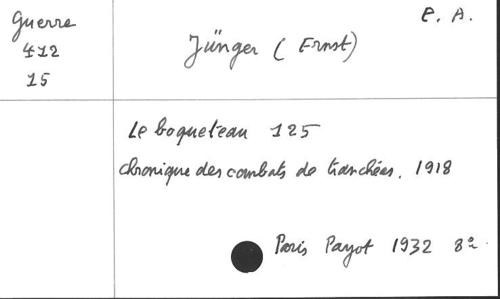 Guerre
412
15
P. A.
Jünger (Ernst)
Le boqueteau 125
chronique des combats de tranchées. 1918
Paris Payot 1932 8º